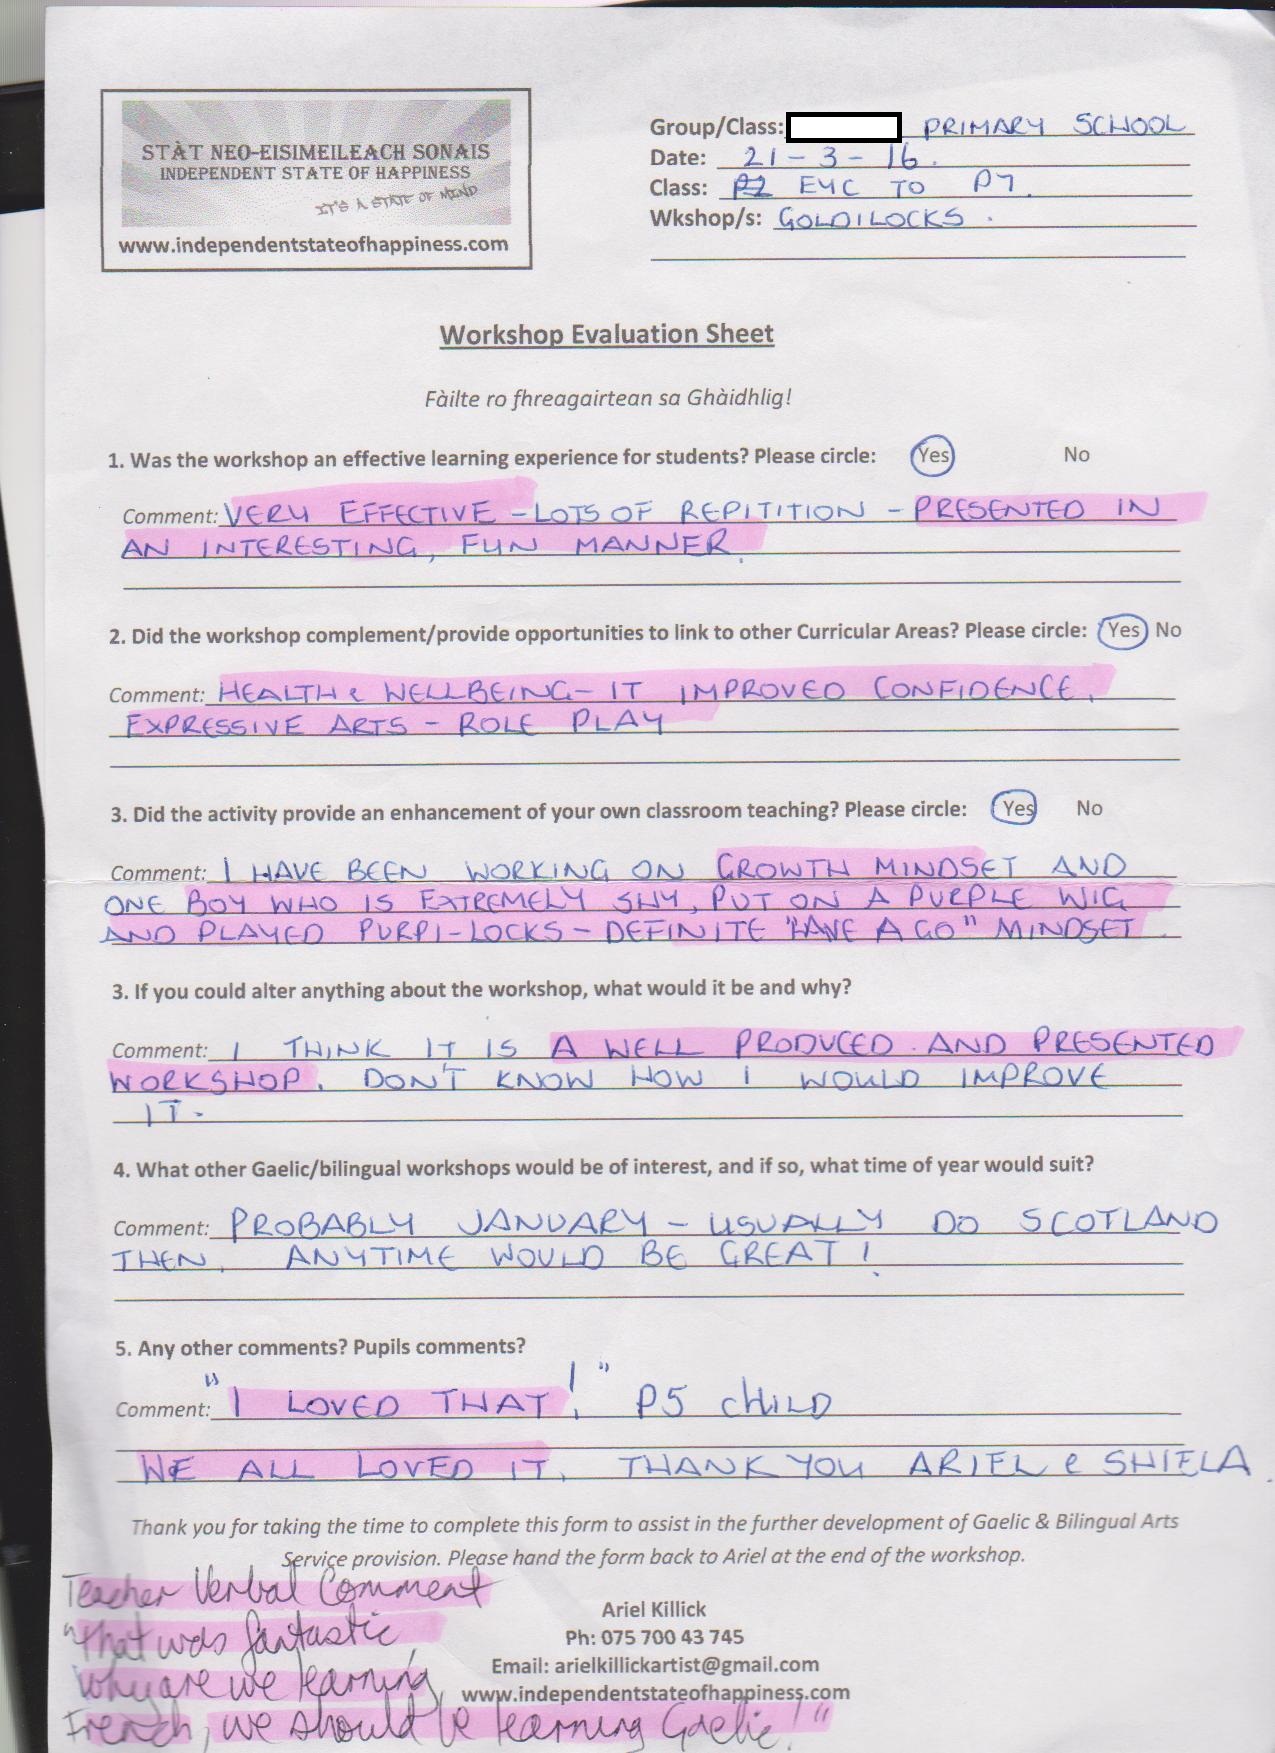 STÀT NEO-EISIMEILEACH SONAIS
INDEPENDENT STATE OF HAPPINESS
IT'S A STATE OF MIND
www.independentstateofhappiness.com
Group/Class: PRIMARY SCHOOL
Date: 21-3-16.
Class: P2 EYC TO P7.
Wkshop/s: GOLDILOCKS.
Workshop Evaluation Sheet
Fàilte ro fhreagairtean sa Ghàidhlig!
1. Was the workshop an effective learning experience for students? Please circle: Yes No
Comment: VERY EFFECTIVE - LOTS OF REPITITION - PRESENTED IN
AN INTERESTING, FUN MANNER.
2. Did the workshop complement/provide opportunities to link to other Curricular Areas? Please circle: Yes No
Comment: HEALTH & WELLBEING - IT IMPROVED CONFIDENCE,
EXPRESSIVE ARTS - ROLE PLAY
3. Did the activity provide an enhancement of your own classroom teaching? Please circle: Yes No
Comment: I HAVE BEEN WORKING ON GROWTH MINDSET AND
ONE BOY WHO IS EXTREMELY SHY, PUT ON A PURPLE WIG
AND PLAYED PURPI-LOCKS - DEFINITE "HAVE A GO" MINDSET.
3. If you could alter anything about the workshop, what would it be and why?
Comment: I THINK IT IS A WELL PRODUCED AND PRESENTED
WORKSHOP. DON'T KNOW HOW I WOULD IMPROVE
IT.
4. What other Gaelic/bilingual workshops would be of interest, and if so, what time of year would suit?
Comment: PROBABLY JANUARY - USUALLY DO SCOTLAND
THEN. ANYTIME WOULD BE GREAT!
5. Any other comments? Pupils comments?
Comment: "I LOVED THAT!" P5 CHILD
WE ALL LOVED IT. THANK YOU ARIEL & SHIELA.
Thank you for taking the time to complete this form to assist in the further development of Gaelic & Bilingual Arts
Service provision. Please hand the form back to Ariel at the end of the workshop.
Teacher Verbal Comment
"That was fantastic,
why are we learning
French, we should be learning Gaelic!"
Ariel Killick
Ph: 075 700 43 745
Email: arielkillickartist@gmail.com
www.independentstateofhappiness.com